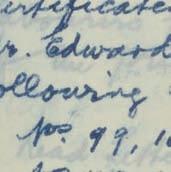 ertificate
r. Edward
ollowing
Nos. 99, 1